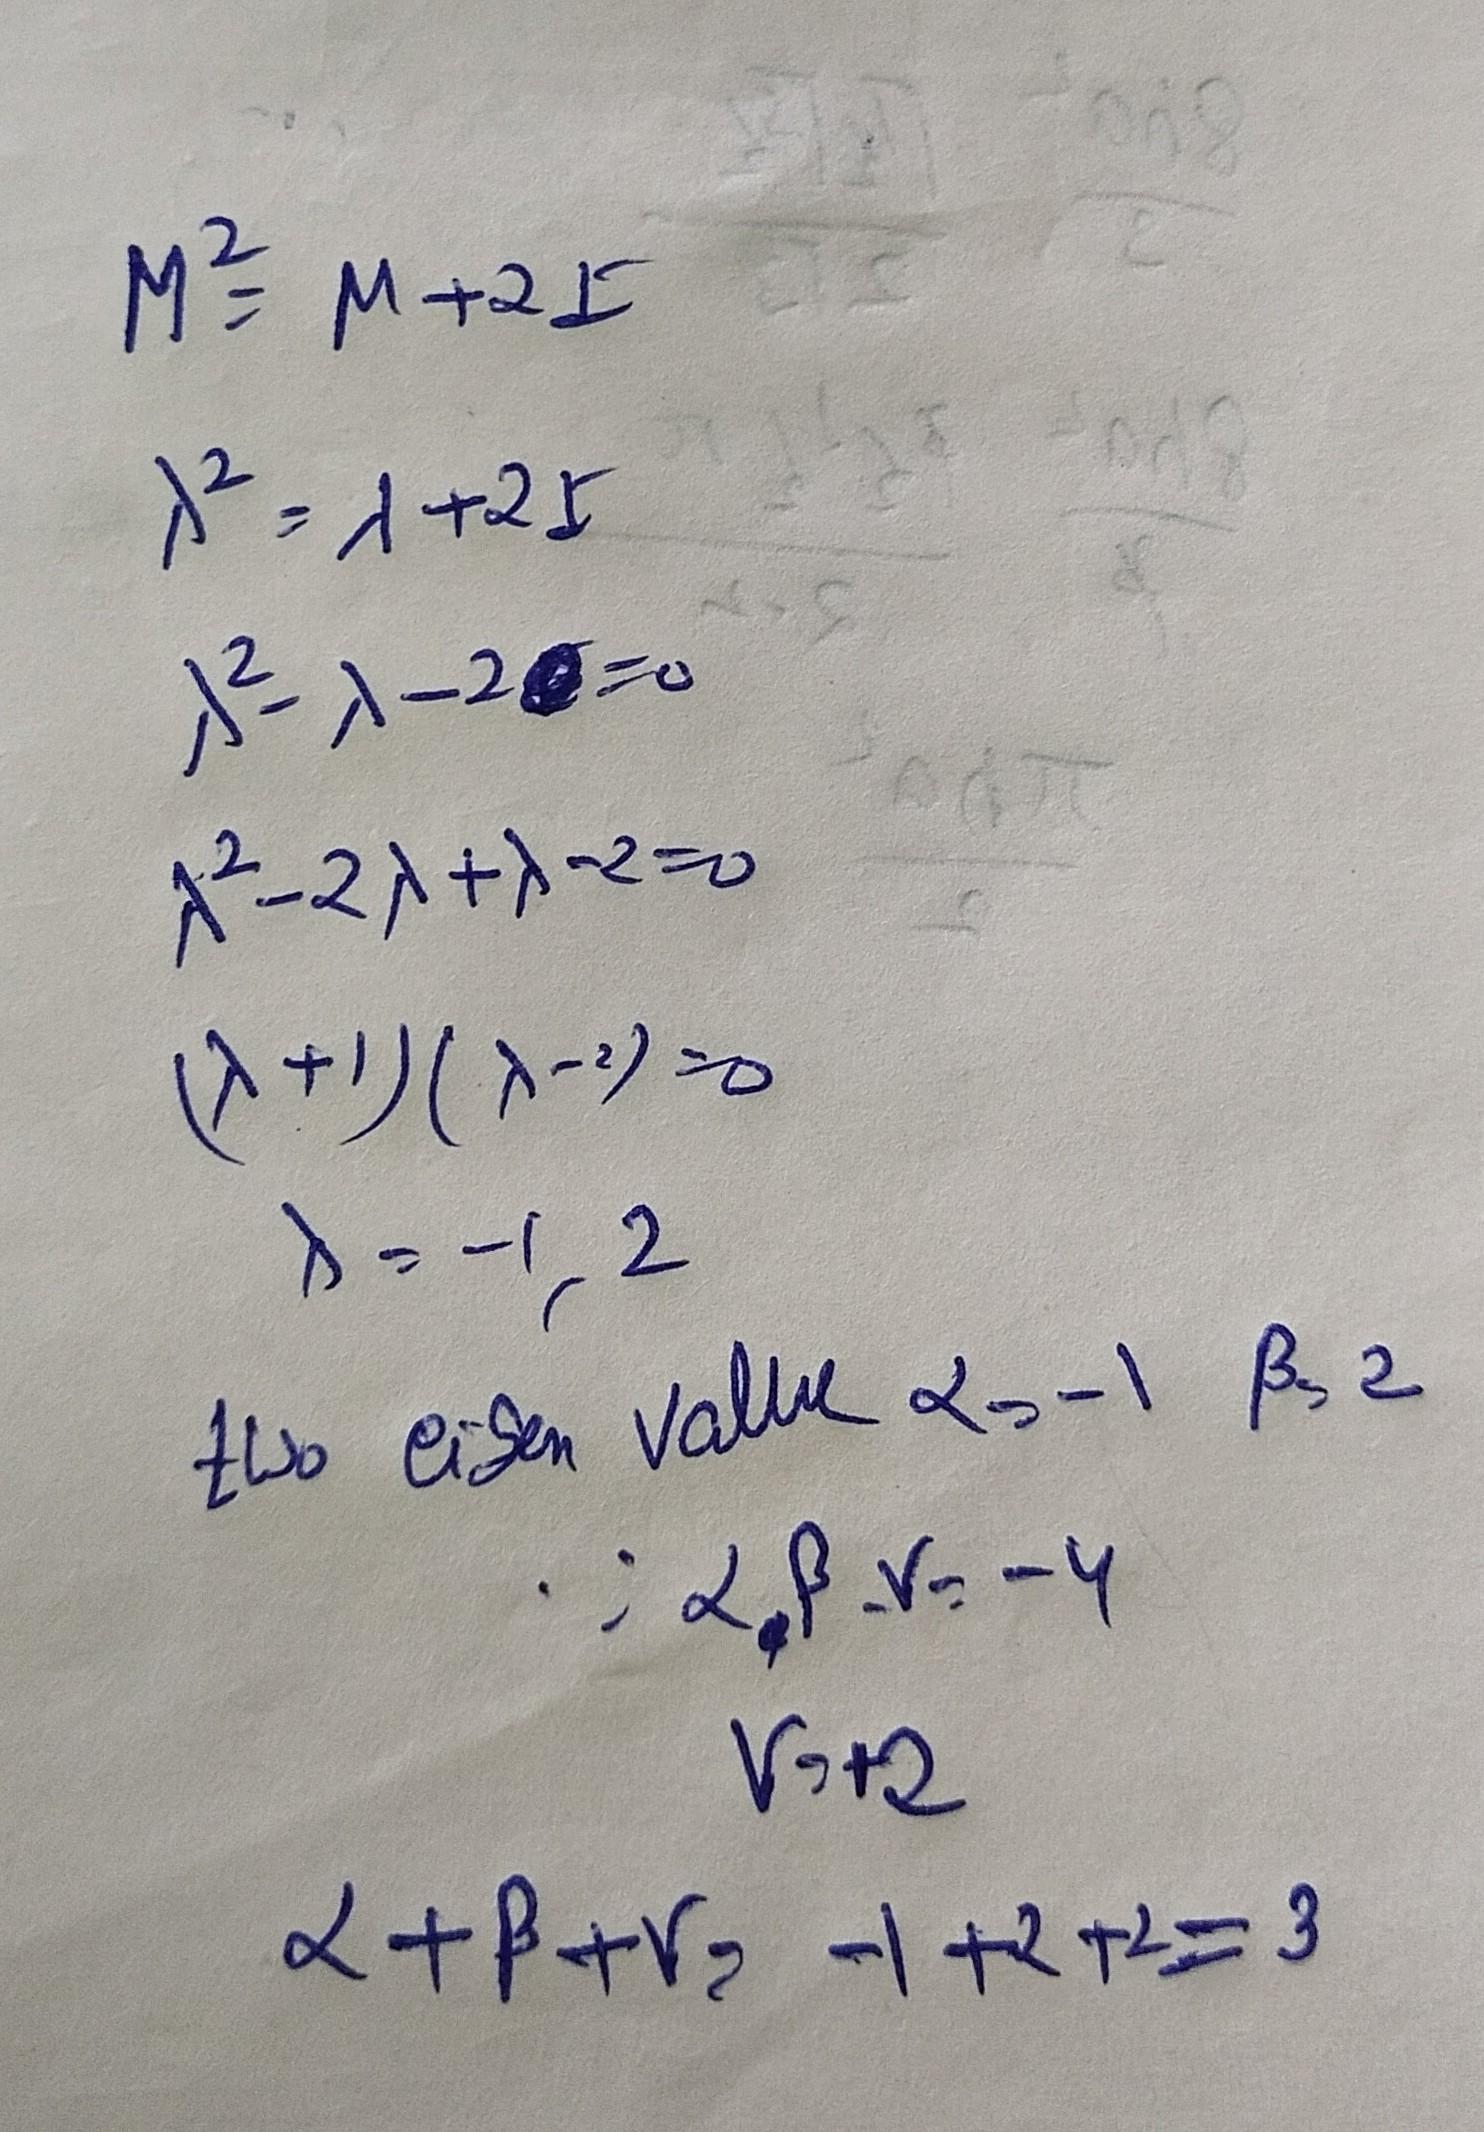 M² = M + 2I
λ² = λ + 2I
λ² - λ - 2 = 0
λ² - 2λ + λ - 2 = 0
(λ + 1)(λ - 2) = 0
λ = -1, 2
two eigen value α = -1 β = 2
∴ α.β.γ = -4
γ = +2
α + β + γ = -1 + 2 + 2 = 3